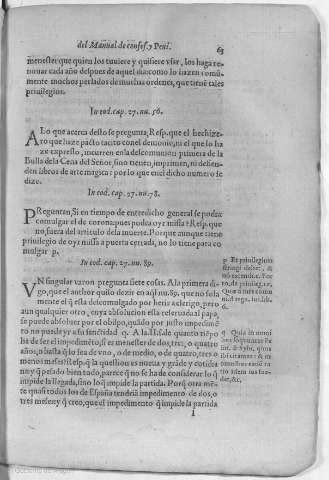 del Manual de confes. y Peni. 65
menester que quien los tuuiere y quisiere vsar, los haga re-
nouar cada año despues de aquel assi como lo hazen comũ-
mente muchos perlados de muchas ordenes, que tienē tales
priuilegios.
In eod. cap. 27. nu. 56.
A Lo que acerca desto se pregunta, Resp. que el hechize-
ro que haze pacto tacito con el demonio, ni el que lo ha-
ze expresso, incurren en la descomuniõ primera de la
Bulla de la Cena del Señor, sino tienē, imprimen, ni defien-
den libros de arte magica: por lo que en el dicho numero se
dize.
In eod. cap. 27. nu. 78.
PReguntan, Si en tiempo de entredicho general se podra
comulgar el de corona, pues podra oyr missa? Resp. que
no, fuera del articulo de la muerte. Porque aunque tiene
priuilegio de oyr missa a puerta cerrada, no lo tiene para co
mulgar p.
In eod. cap. 27. nu. 89.
VN singular varon pregunta siete cosas. A la primera di-
go, que el author quiso dezir en aql nu. 89. que no sola
mente el q̃ esta descomulgado por herir a clerigo, pero
aun qualquier otro, cuya absolucion esta reseruada al papa,
se puede absoluer por el obispo, quãdo por justo impedimē-
to no puede yr a su sanctidad q. A la .II. si de quanto tiẽpo
ha de ser el impedimẽto, si es menester de dos, tres, o quatro
años, o basta q̃ lo sea de vno, o de medio, o de quatro, tres o
menos meses: Resp. q̃ la question es nueua y graue y cotidia
na y q̃ pesado bien todo, parece q̃ no se ha de considerar lo q̃
impide la llegada, sino lo q̃ impide la partida. Porq̃ otra mē-
te quasi todos los de España tendriã impedimento de dos, o
tres meses y q̃ creo, que el impedimento q̃ impide la partida
I
p Et priuilegium